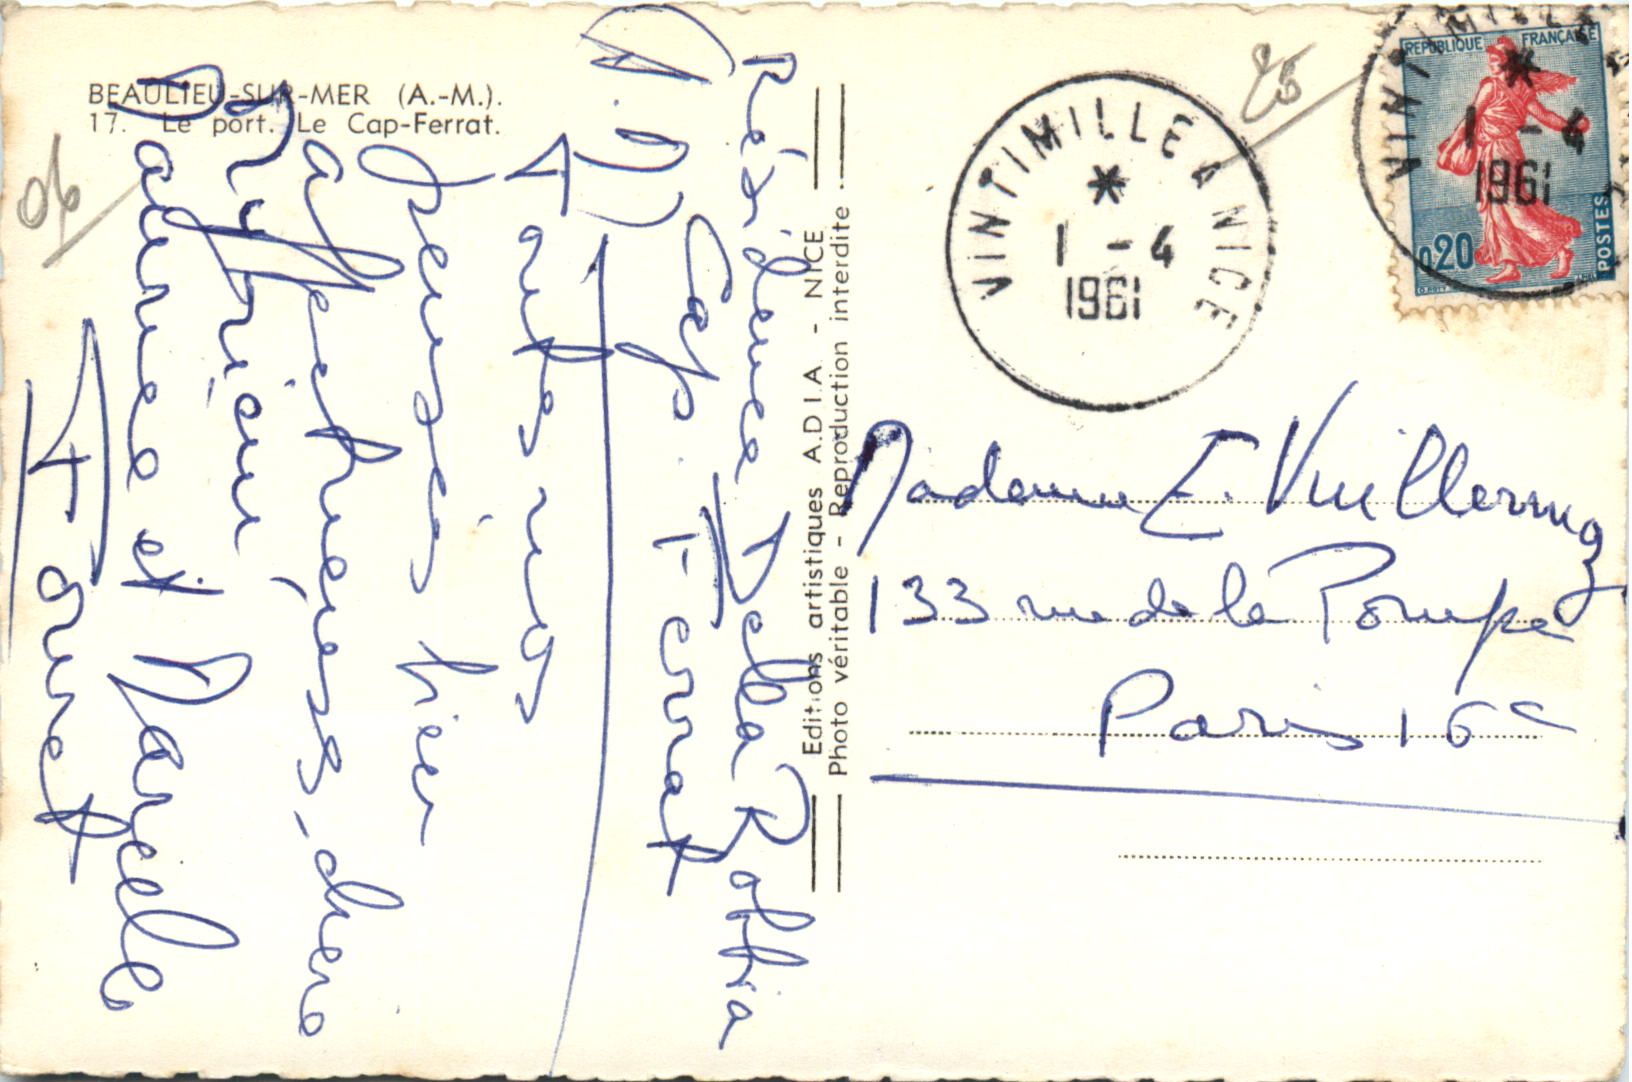 BEAULIEU-SUR-MER (A.-M.).
17. Le port. Le Cap-Ferrat.
06
Résidence Della Robbia
Cap. Ferrat
(A.M)
Toutes nos
pensées bien
affectueuses, chère
Madame et Marcelle
Fouret
Editions artistiques A.D.I.A. - NICE
Photo véritable - Reproduction interdite
25
VINTIMILLE A NICE
*
1 - 4
1961
VINTIMILLE
*
1 - 4
1961
REPUBLIQUE FRANÇAISE
0,20
POSTES
Madame E. Vuillermoz
133 rue de la Pompe
Paris 16e